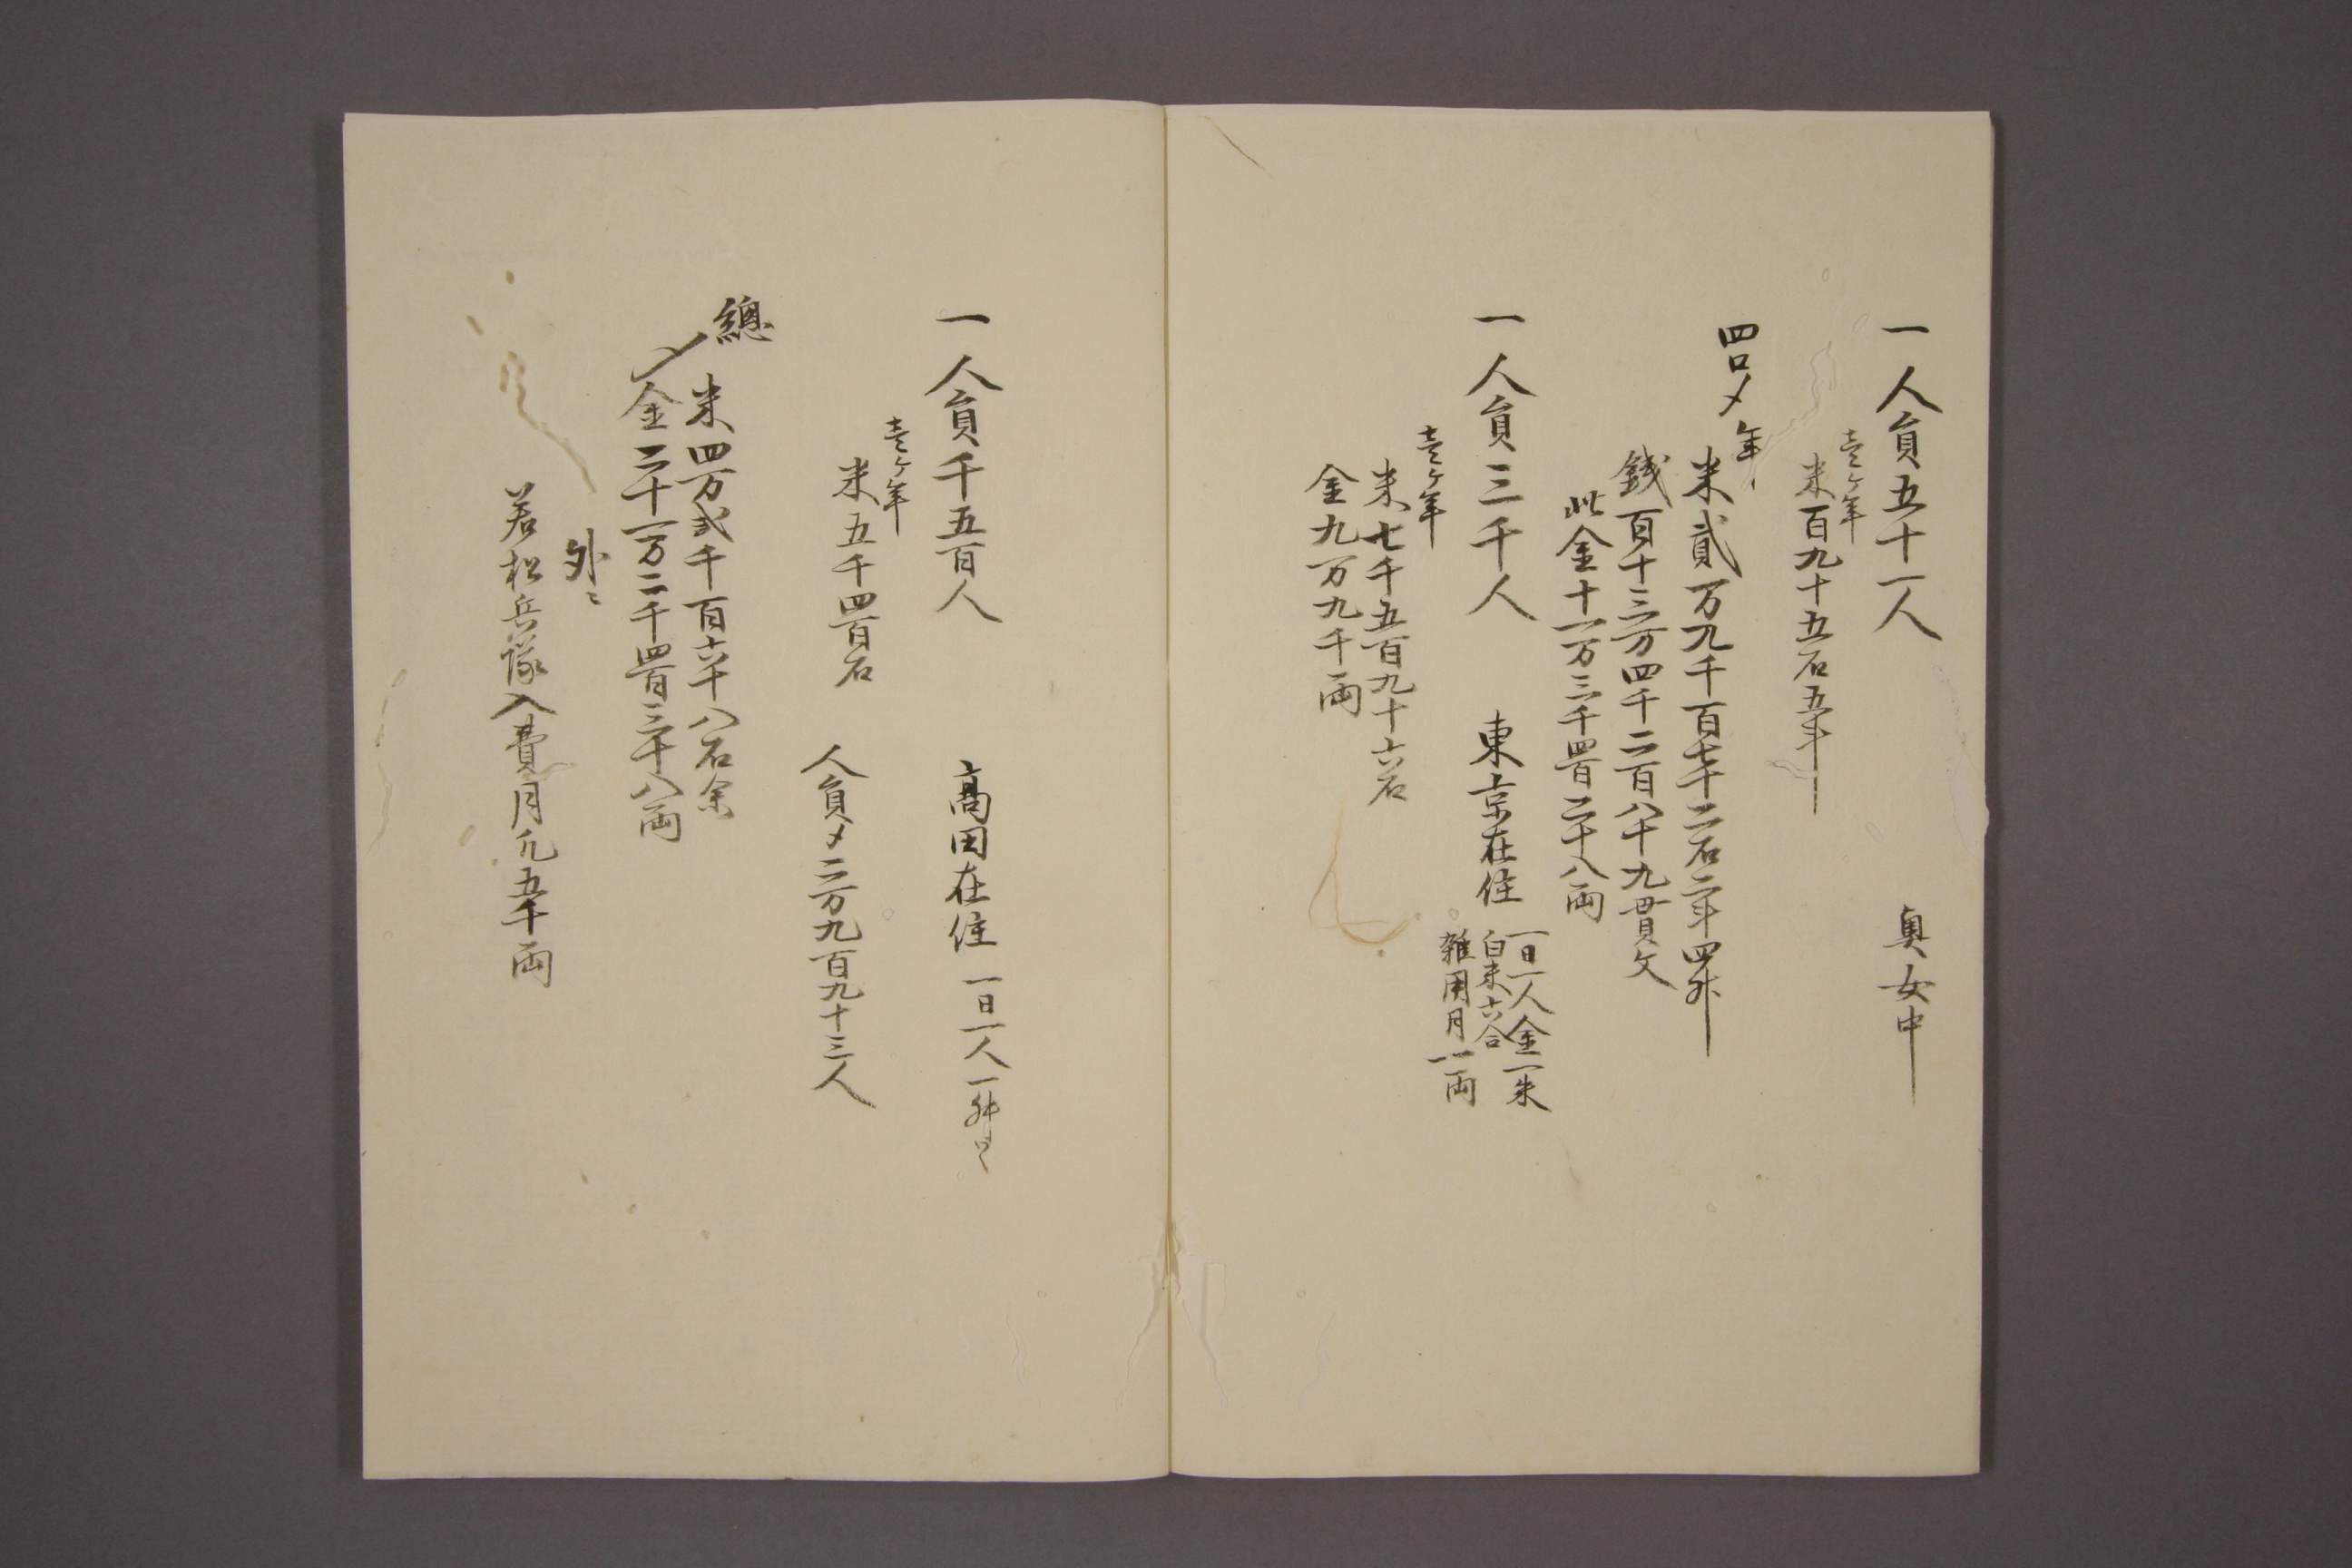 一人員五十一人　奥女中
壱ヶ年
米百九十五石五斗
四口〆年
米貳万九千百七十二石二斗四升
銭百十三万四千二百八十九貫文
此金十一万三千四百二十八両
一人員三千人　東京在住
一日一人金一朱
白米六合
雑用月一両
壱ヶ年
米七千五百九十六石
金九万九千両
一人員千五百人　高田在住　一日一人一升
壱ヶ年
米五千四百石
人員〆二万九百九十三人
總〆
米四万弐千百六十八石余
金二十一万二千四百二十八両
外ニ
若松兵隊入費月凡五千両